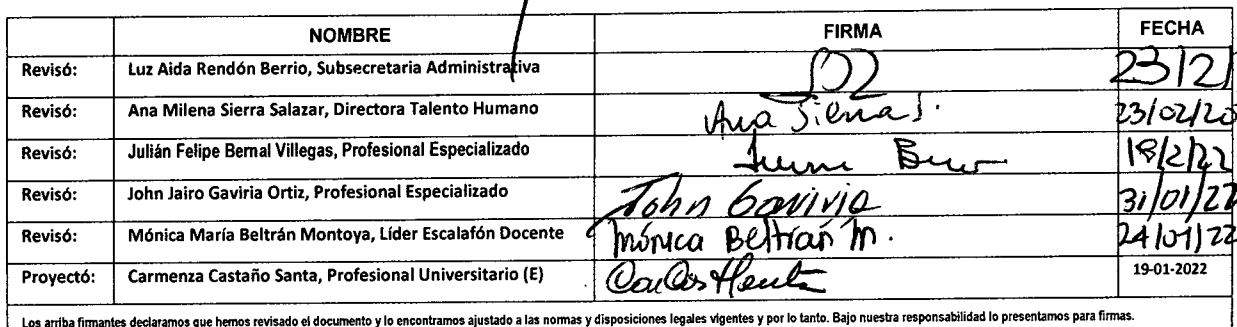 NOMBRE FIRMA FECHA
Revisó: Luz Aida Rendón Berrio, Subsecretaria Administrativa 23/2/
Revisó: Ana Milena Sierra Salazar, Directora Talento Humano Ana Sierra S. 23/02/20
Revisó: Julián Felipe Bernal Villegas, Profesional Especializado 18/2/22
Revisó: John Jairo Gaviria Ortiz, Profesional Especializado John Gaviria 31/01/22
Revisó: Mónica María Beltrán Montoya, Líder Escalafón Docente Mónica Beltrán M. 24/01/22
Proyectó: Carmenza Castaño Santa, Profesional Universitario (E) 19-01-2022
Los arriba firmantes declaramos que hemos revisado el documento y lo encontramos ajustado a las normas y disposiciones legales vigentes y por lo tanto. Bajo nuestra responsabilidad lo presentamos para firmas.